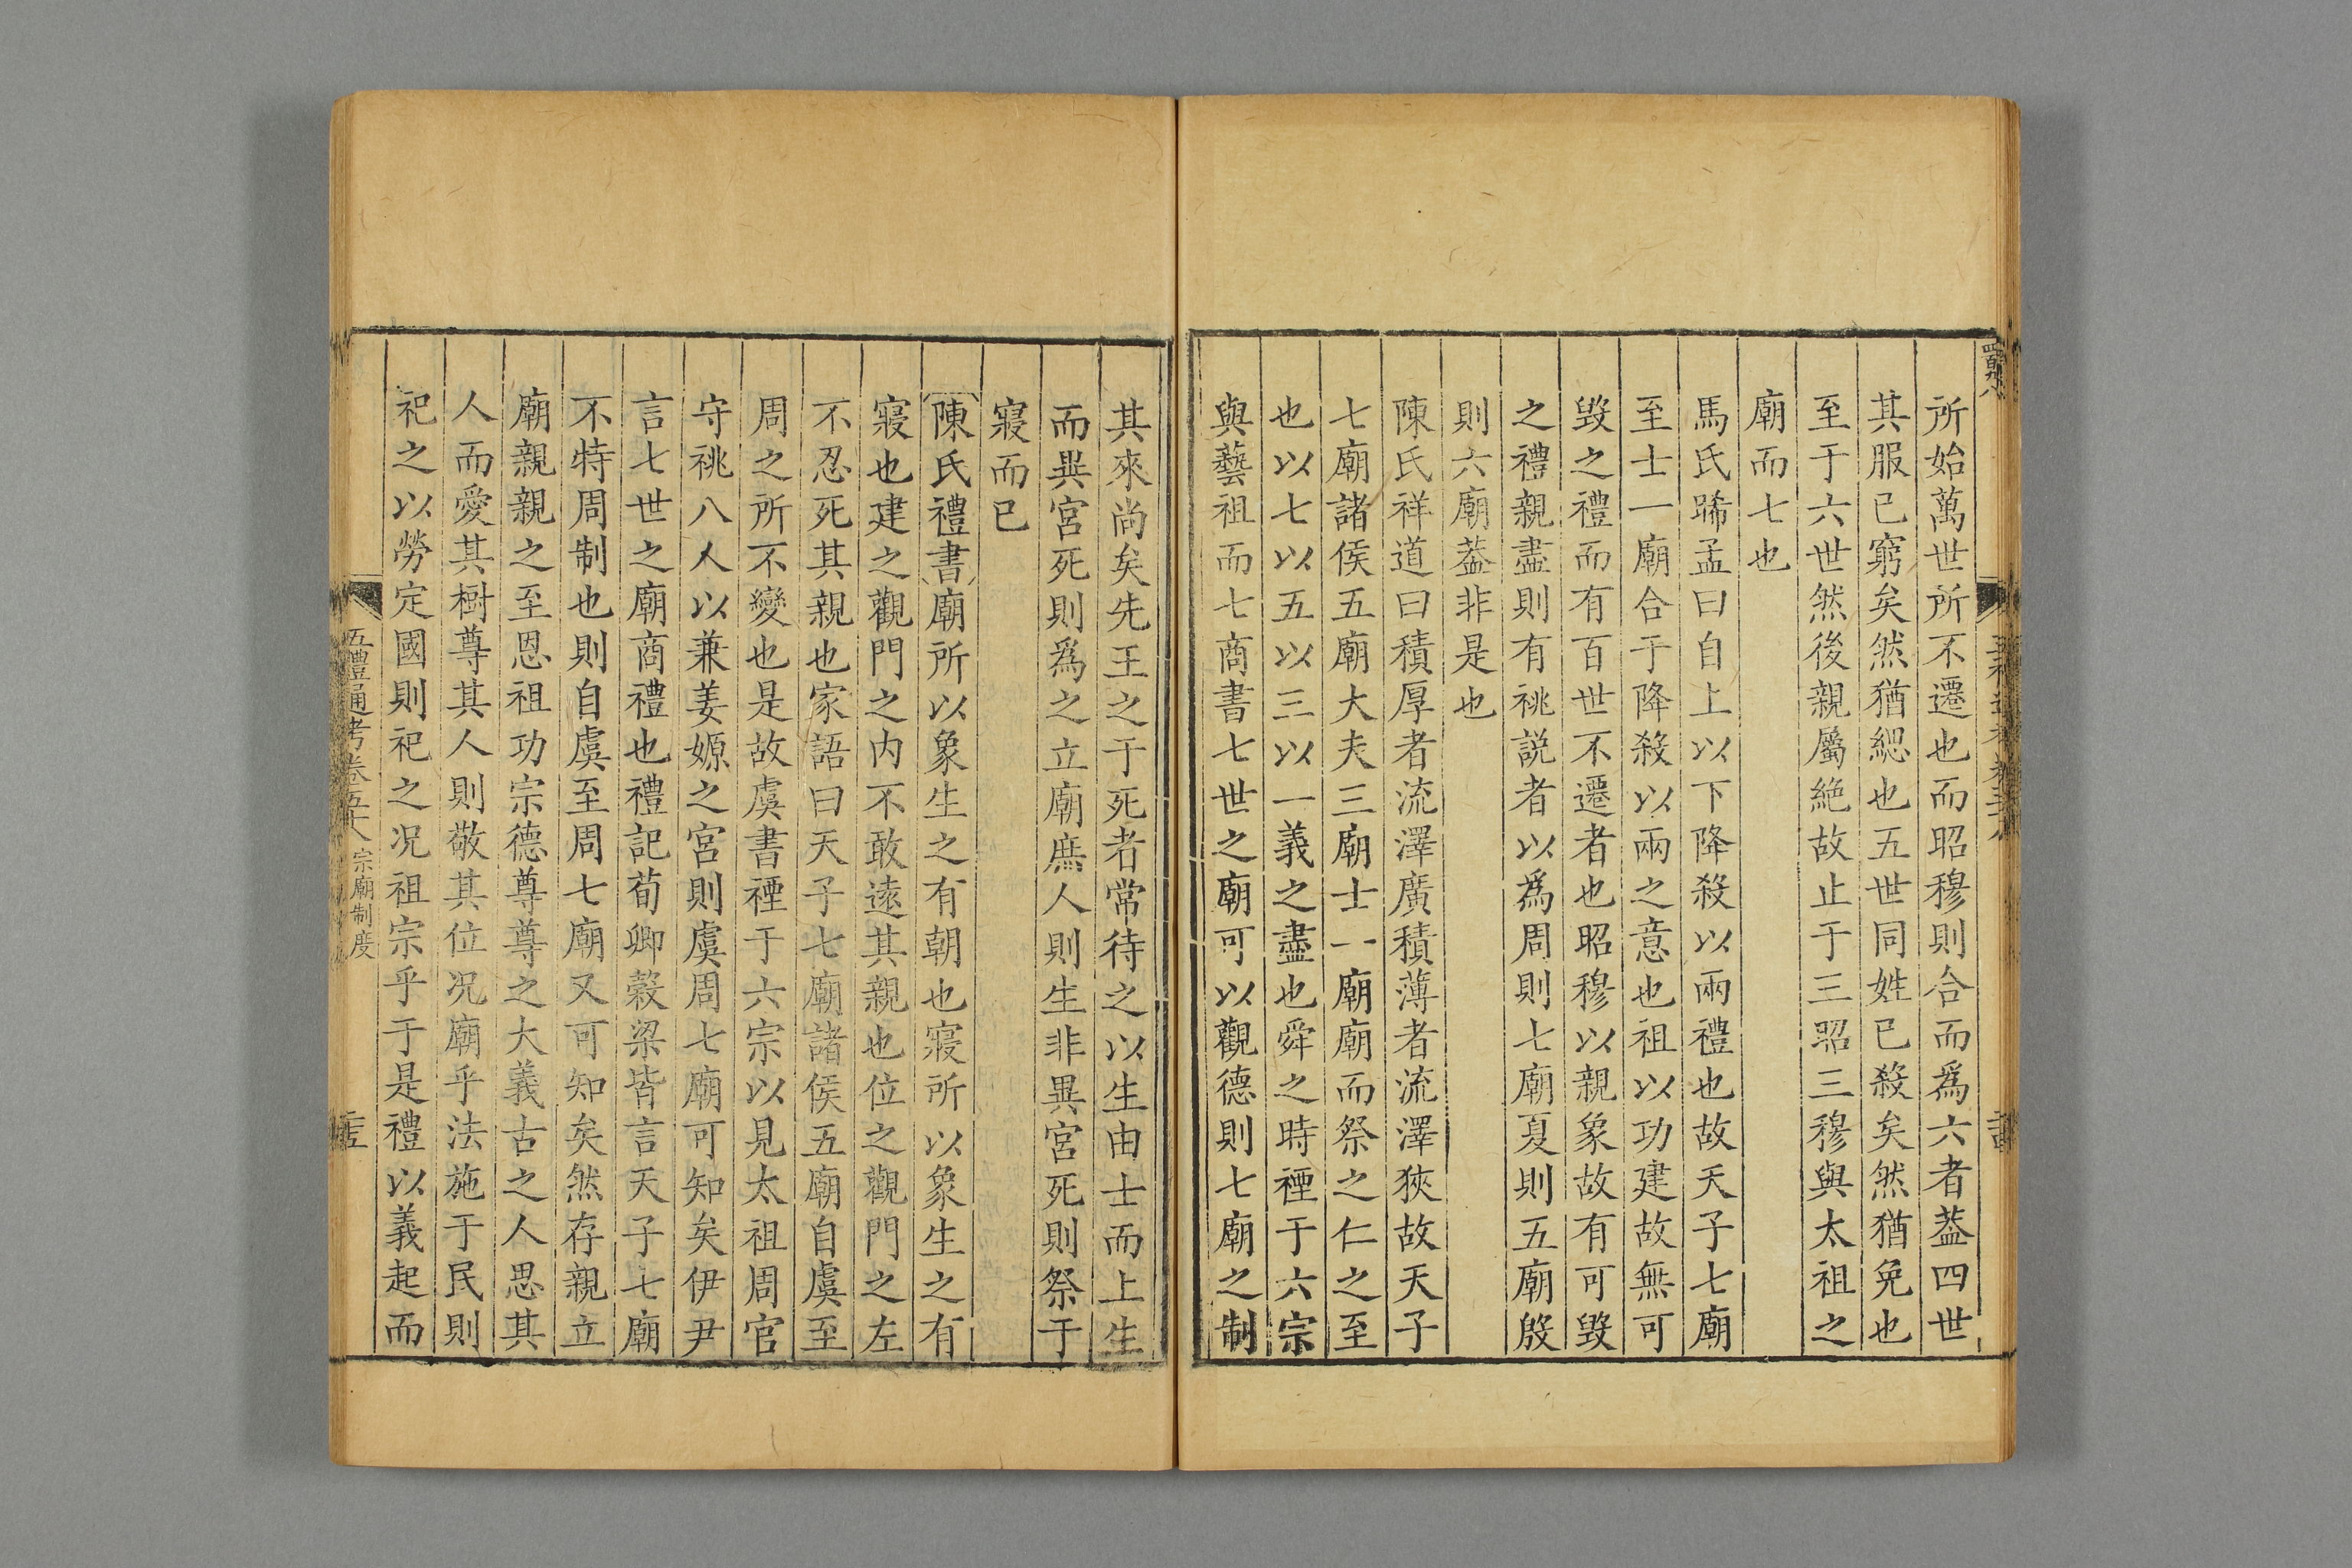 所始萬世所不遷也而昭穆則合而爲六者葢四世
其服已窮矣然猶緦也五世同姓已殺矣然猶免也
至于六世然後親屬絶故止于三昭三穆與太祖之
廟而七也
馬氏睎孟曰自上以下降殺以兩禮也故天子七廟
至士一廟合于降殺以兩之意也祖以功建故無可
毀之禮而有百世不遷者也昭穆以親象故有可毀
之禮親盡則有祧説者以爲周則七廟夏則五廟殷
則六廟葢非是也
陳氏祥道曰積厚者流澤廣積薄者流澤狹故天子
七廟諸侯五廟大夫三廟士一廟廟而祭之仁之至
也以七以五以三以一義之盡也舜之時禋于六宗
與藝祖而七商書七世之廟可以觀德則七廟之制
其來尚矣先王之于死者常待之以生由士而上生
而異宮死則爲之立廟庶人則生非異宮死則祭于
寢而已
陳氏禮書廟所以象生之有朝也寢所以象生之有
寢也建之觀門之内不敢遠其親也位之觀門之左
不忍死其親也家語曰天子七廟諸侯五廟自虞至
周之所不變也是故虞書禋于六宗以見太祖周官
守祧八人以兼姜嫄之宮則虞周七廟可知矣伊尹
言七世之廟商禮也禮記荀卿穀梁皆言天子七廟
不特周制也則自虞至周七廟又可知矣然存親立
廟親親之至恩祖功宗德尊尊之大義古之人思其
人而愛其樹尊其人則敬其位况廟乎法施于民則
祀之以勞定國則祀之况祖宗乎于是禮以義起而
五禮通考卷五十八 宗廟制度